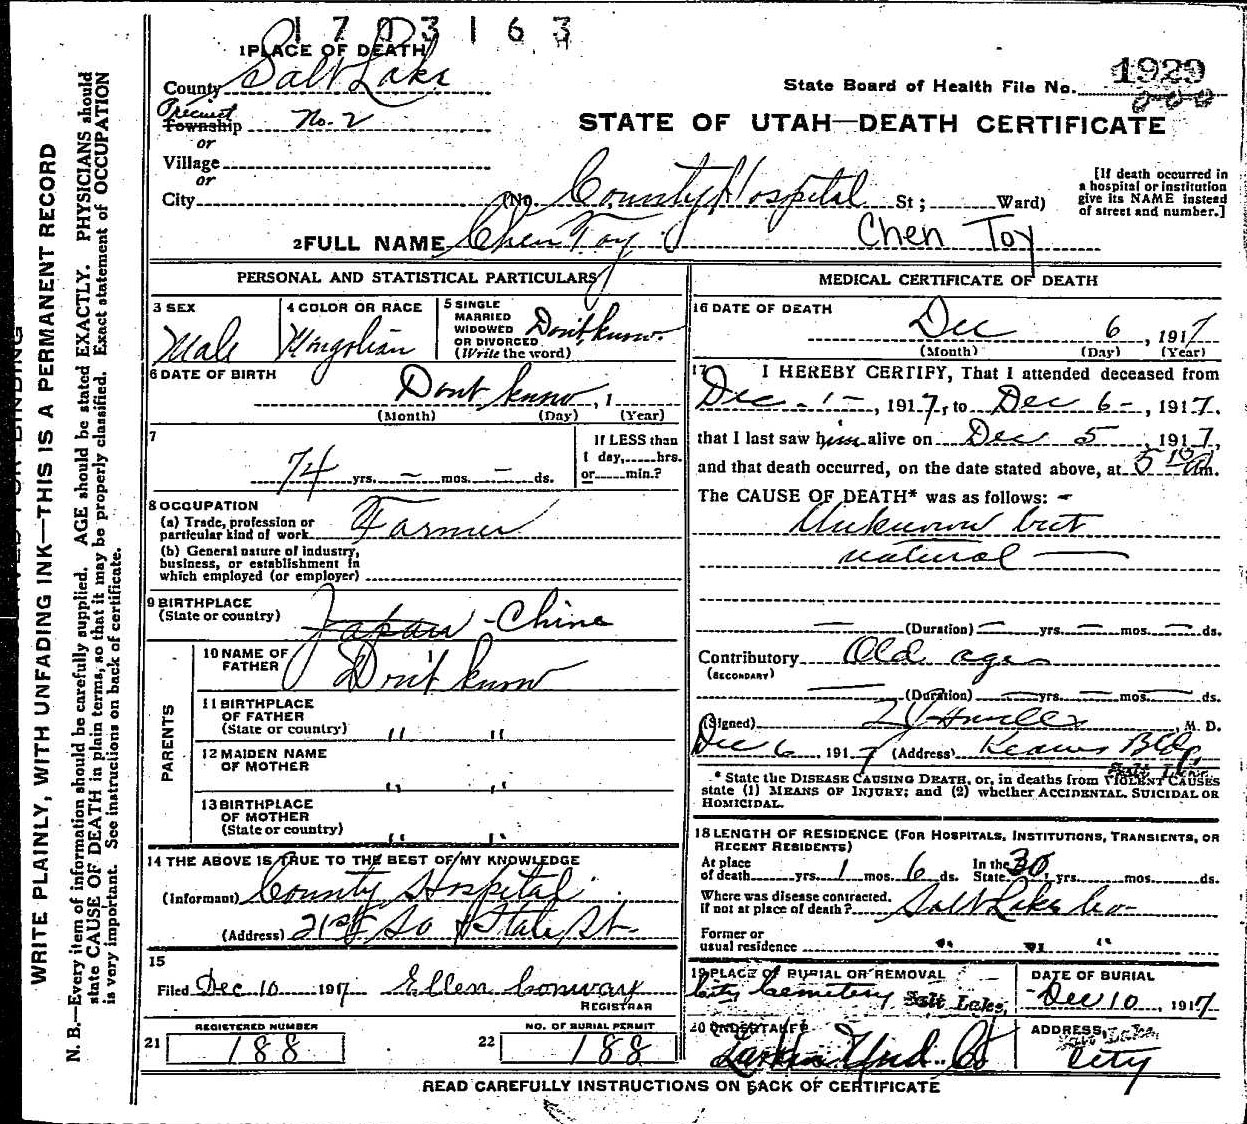 1703163
1 PLACE OF DEATH
County Salt Lake
State Board of Health File No. 1929
Precinct
Township No. 2
or
STATE OF UTAH—DEATH CERTIFICATE
Village
or
City (No. County Hospital St; Ward)
[If death occurred in
a hospital or institution
give its NAME instead
of street and number.]
2 FULL NAME Chen Toy Chen Toy
PERSONAL AND STATISTICAL PARTICULARS
3 SEX
Male
4 COLOR OR RACE
Mongolian
5 SINGLE
MARRIED
WIDOWED
OR DIVORCED
(Write the word)
Don't know.
6 DATE OF BIRTH
Dont know, 1
(Month) (Day) (Year)
7
74 yrs. — mos. — ds.
If LESS than
1 day, hrs.
or min.?
8 OCCUPATION
(a) Trade, profession or
particular kind of work Farmer
(b) General nature of industry,
business, or establishment in
which employed (or employer)
9 BIRTHPLACE
(State or country) Japan - China
PARENTS
10 NAME OF
FATHER Don't know
11 BIRTHPLACE
OF FATHER
(State or country) " "
12 MAIDEN NAME
OF MOTHER " "
13 BIRTHPLACE
OF MOTHER
(State or country) " "
14 THE ABOVE IS TRUE TO THE BEST OF MY KNOWLEDGE
(Informant) County Hospital
(Address) 21st So & State St
15
Filed Dec 10 1917 Ellen Conway
REGISTRAR
REGISTERED NUMBER
21 188
NO. OF BURIAL PERMIT
22 188
MEDICAL CERTIFICATE OF DEATH
16 DATE OF DEATH
Dec 6, 1917
(Month) (Day) (Year)
17 I HEREBY CERTIFY, That I attended deceased from
Dec - 1 -, 1917, to Dec 6 -, 1917.
that I last saw him alive on Dec 5, 1917,
and that death occurred, on the date stated above, at 5 10 A m.
The CAUSE OF DEATH* was as follows: -
Unknown but
natural
(Duration) — yrs. — mos. — ds.
Contributory Old age
(SECONDARY)
(Duration) — yrs. — mos. — ds.
(Signed) M. D.
Dec 6, 1917 (Address) Kearns Bldg.
Salt Lake
* State the DISEASE CAUSING DEATH, or, in deaths from VIOLENT CAUSES
state (1) MEANS OF INJURY; and (2) whether ACCIDENTAL, SUICIDAL OR
HOMICIDAL.
18 LENGTH OF RESIDENCE (FOR HOSPITALS, INSTITUTIONS, TRANSIENTS, OR
RECENT RESIDENTS)
At place
of death yrs. 1 mos. 6 ds.
In the
State 30 yrs. mos. ds.
Where was disease contracted,
if not at place of death? Salt Lake Co-
Former or
usual residence " " "
19 PLACE OF BURIAL OR REMOVAL
City Cemetery Salt Lake,
DATE OF BURIAL
Dec 10, 1917
20 UNDERTAKER
Larkin Und. Co
ADDRESS
Salt Lake
City
READ CAREFULLY INSTRUCTIONS ON BACK OF CERTIFICATE
WRITE PLAINLY, WITH UNFADING INK—THIS IS A PERMANENT RECORD
N. B.—Every item of information should be carefully supplied. AGE should be stated EXACTLY. PHYSICIANS should
state CAUSE OF DEATH in plain terms, so that it may be properly classified. Exact statement of OCCUPATION
is very important. See instructions on back of certificate.